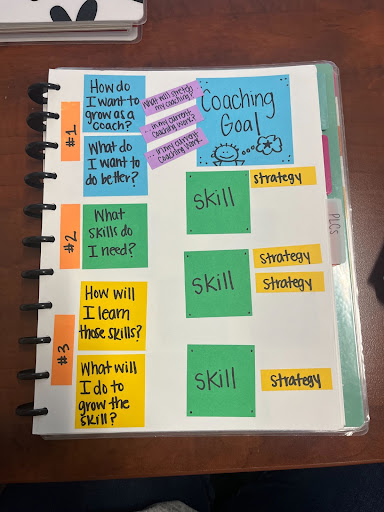 #1
How do
I want to
grow as a
"coach?
What do
I want to
do better?
What will stretch
my coaching?
... in my current
coaching work?
... in my current
coaching work...
Coaching
Goal
skill
strategy
#2
What
skills do
I need?
skill
strategy
strategy
PLCs
#3
How will
I learn
those skills?
What will
I do to
grow the
skill?
skill
strategy